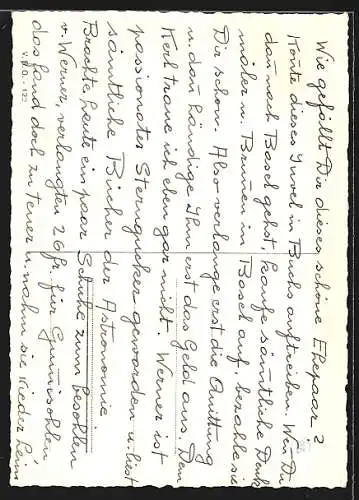 Wie gefällt Dir dieses schöne Ehepaar?
Könnte dieses Juwel in Buchs auftreiben. Wenn Du
dann nach Basel gehst, kaufe sämtliche Denk
mäler u. Brunnen in Basel auf, bezahle sie
Dir schon. Also verlange erst die Quittung
u. dann händige Ihm erst das Geld aus. Dem
Kerl traue ich eben gar nicht. Werner ist
passionater Sterngucker geworden u. liest
sämtliche Bücher der Astronomie.
Brachte heute ein paar Schuhe zum besohlen
v. Werner, verlangten 26 fr. für Gumisohlen
das fand doch zu teuer u. nahm sie wieder heim
V. D. O. - 122